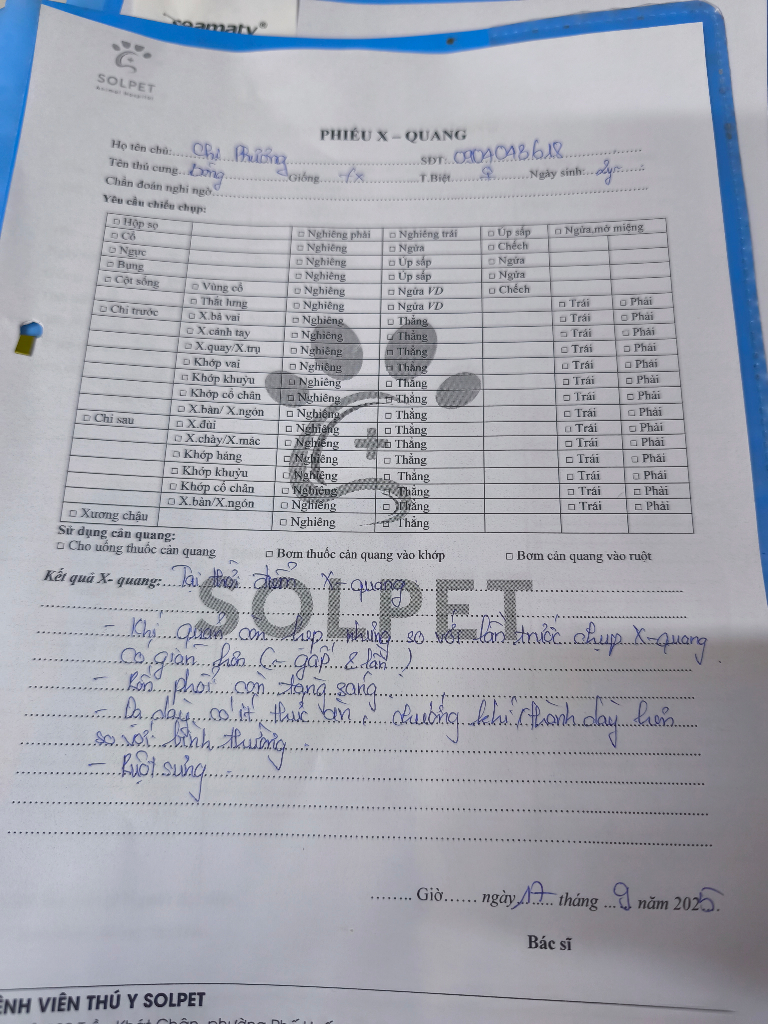 seamaty®
SOLPET
Animal Hospital
PHIẾU X – QUANG
Họ tên chủ: Chị Phương SĐT: 0904043618
Tên thú cưng Bông Giống fx T.Biệt ♀ Ngày sinh: 2yr
Chẩn đoán nghi ngờ
Yêu cầu chiều chụp:
□ Hộp sọ □ Nghiêng phải □ Nghiêng trái □ Úp sấp □ Ngửa mở miệng
□ Cổ □ Nghiêng □ Ngửa □ Chếch
□ Ngực □ Nghiêng □ Úp sấp □ Ngửa
□ Bụng □ Nghiêng □ Úp sấp □ Ngửa
□ Cột sống □ Vùng cổ □ Nghiêng □ Ngửa VD □ Chếch
□ Thắt lưng □ Nghiêng □ Ngửa VD □ Trái □ Phải
□ Chi trước □ X.bả vai □ Nghiêng □ Thẳng □ Trái □ Phải
□ X.cánh tay □ Nghiêng □ Thẳng □ Trái □ Phải
□ X.quay/X.trụ □ Nghiêng □ Thẳng □ Trái □ Phải
□ Khớp vai □ Nghiêng □ Thẳng □ Trái □ Phải
□ Khớp khuỷu □ Nghiêng □ Thẳng □ Trái □ Phải
□ Khớp cổ chân □ Nghiêng □ Thẳng □ Trái □ Phải
□ X.bàn/ X.ngón □ Nghiêng □ Thẳng □ Trái □ Phải
□ Chi sau □ X.đùi □ Nghiêng □ Thẳng □ Trái □ Phải
□ X.chày/X.mác □ Nghiêng □ Thẳng □ Trái □ Phải
□ Khớp háng □ Nghiêng □ Thẳng □ Trái □ Phải
□ Khớp khuỷu □ Nghiêng □ Thẳng □ Trái □ Phải
□ Khớp cổ chân □ Nghiêng □ Thẳng □ Trái □ Phải
□ X.bàn/X.ngón □ Nghiêng □ Thẳng □ Trái □ Phải
□ Xương chậu □ Nghiêng □ Thẳng
Sử dụng cản quang:
□ Cho uống thuốc cản quang □ Bơm thuốc cản quang vào khớp □ Bơm cản quang vào ruột
Kết quả X- quang: Tại thời điểm X-quang
SOLPET
- Khí quản còn hẹp nhưng so với lần trước chụp X-quang
có giãn hơn (~ gấp 2 lần)
- Rốn phổi còn tăng sáng
- Dạ dày có ít thức ăn, chướng khí (thành dày hơn
so với bình thường
- Ruột sưng
........ Giờ...... ngày 17 tháng 9 năm 2025.
Bác sĩ
ỆNH VIỆN THÚ Y SOLPET